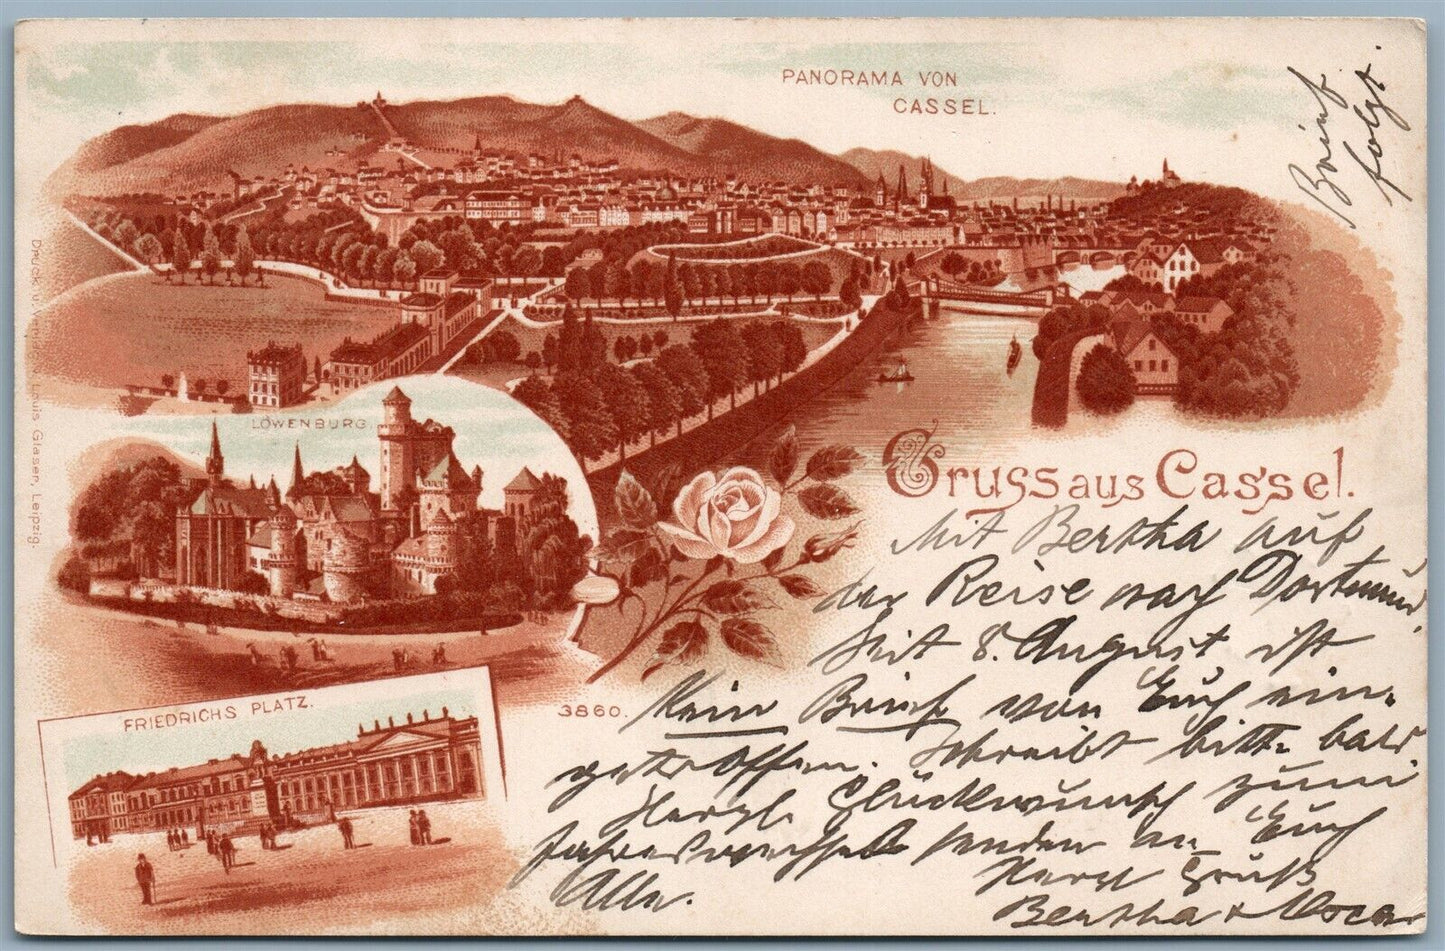 PANORAMA VON
CASSEL.
Brief
folgt.
LÖWENBURG.
Druck u. Verlag Louis Glaser, Leipzig.
Gruss aus Cassel.
Mit Bertha auf
der Reise nach Dortmund,
Seit 8. August ist
Kein Brief von Euch ein-
getroffen. Schreibt bitte bald
Herzl. Glückwunsch zum
Jahreswechsel senden an Euch
Alle.
Herzl Gruß
Bertha & Oscar
3860.
FRIEDRICHS PLATZ.